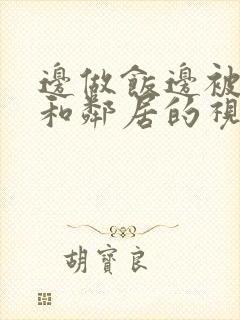 邊做飯邊被
和鄰居的視
胡寶良